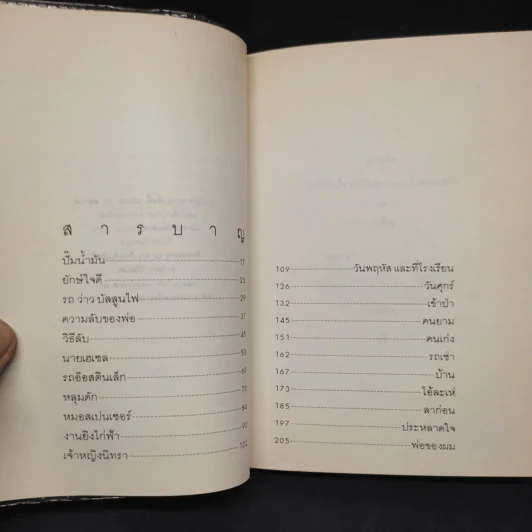 สารบาญ
ปั๊มน้ำมัน 17
ยักษ์ใจดี 23
รถ ว่าว บัลลูนไฟ 29
ความลับของพ่อ 37
วิธีลับ 45
นายเฮเซล 50
รถอ๊อสตินเล็ก 60
หลุมดัก 72
หมอสเปนเซอร์ 84
งานยิงไก่ฟ้า 92
เจ้าหญิงนิทรา 102
109 วันพฤหัส และที่โรงเรียน
126 วันศุกร์
132 เข้าป่า
145 คนยาม
151 คนเก่ง
162 รถเช่า
167 บ้าน
173 โอ้ละเห่
185 ลาก่อน
197 ประหลาดใจ
205 พ่อของผม